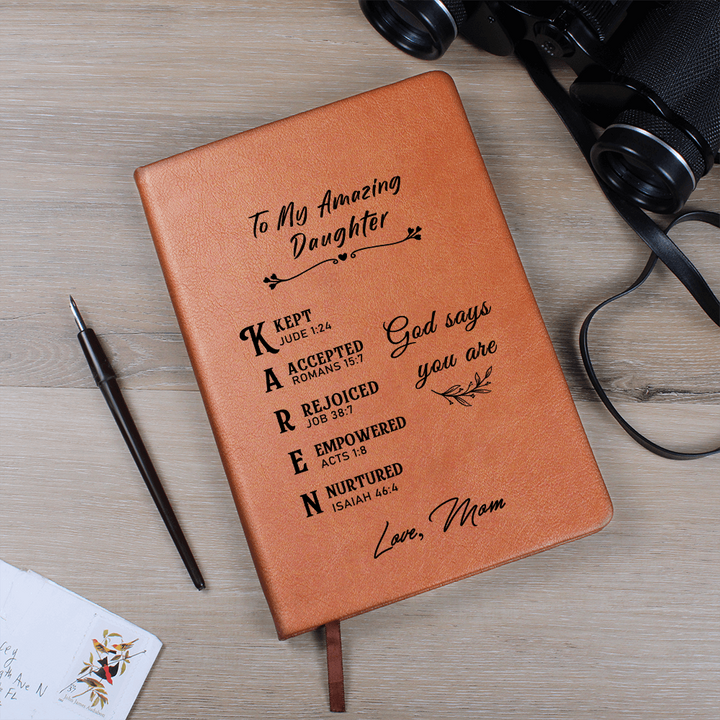 To My Amazing
Daughter
God says
you are
K KEPT
JUDE 1:24
A ACCEPTED
ROMANS 15:7
R REJOICED
JOB 38:7
E EMPOWERED
ACTS 1:8
N NURTURED
ISAIAH 46:4
Love, Mom
Ave N
FL